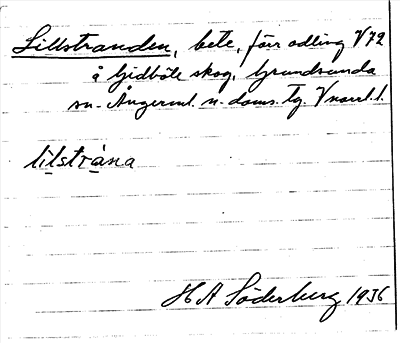 Lillstranden, bete, förr odling V72
å Gjidböle skog, Grundsunda
sn. Ångerml. n. doms. tg. Vnorrl. l.
lilstrána
H A Söderberg 1936